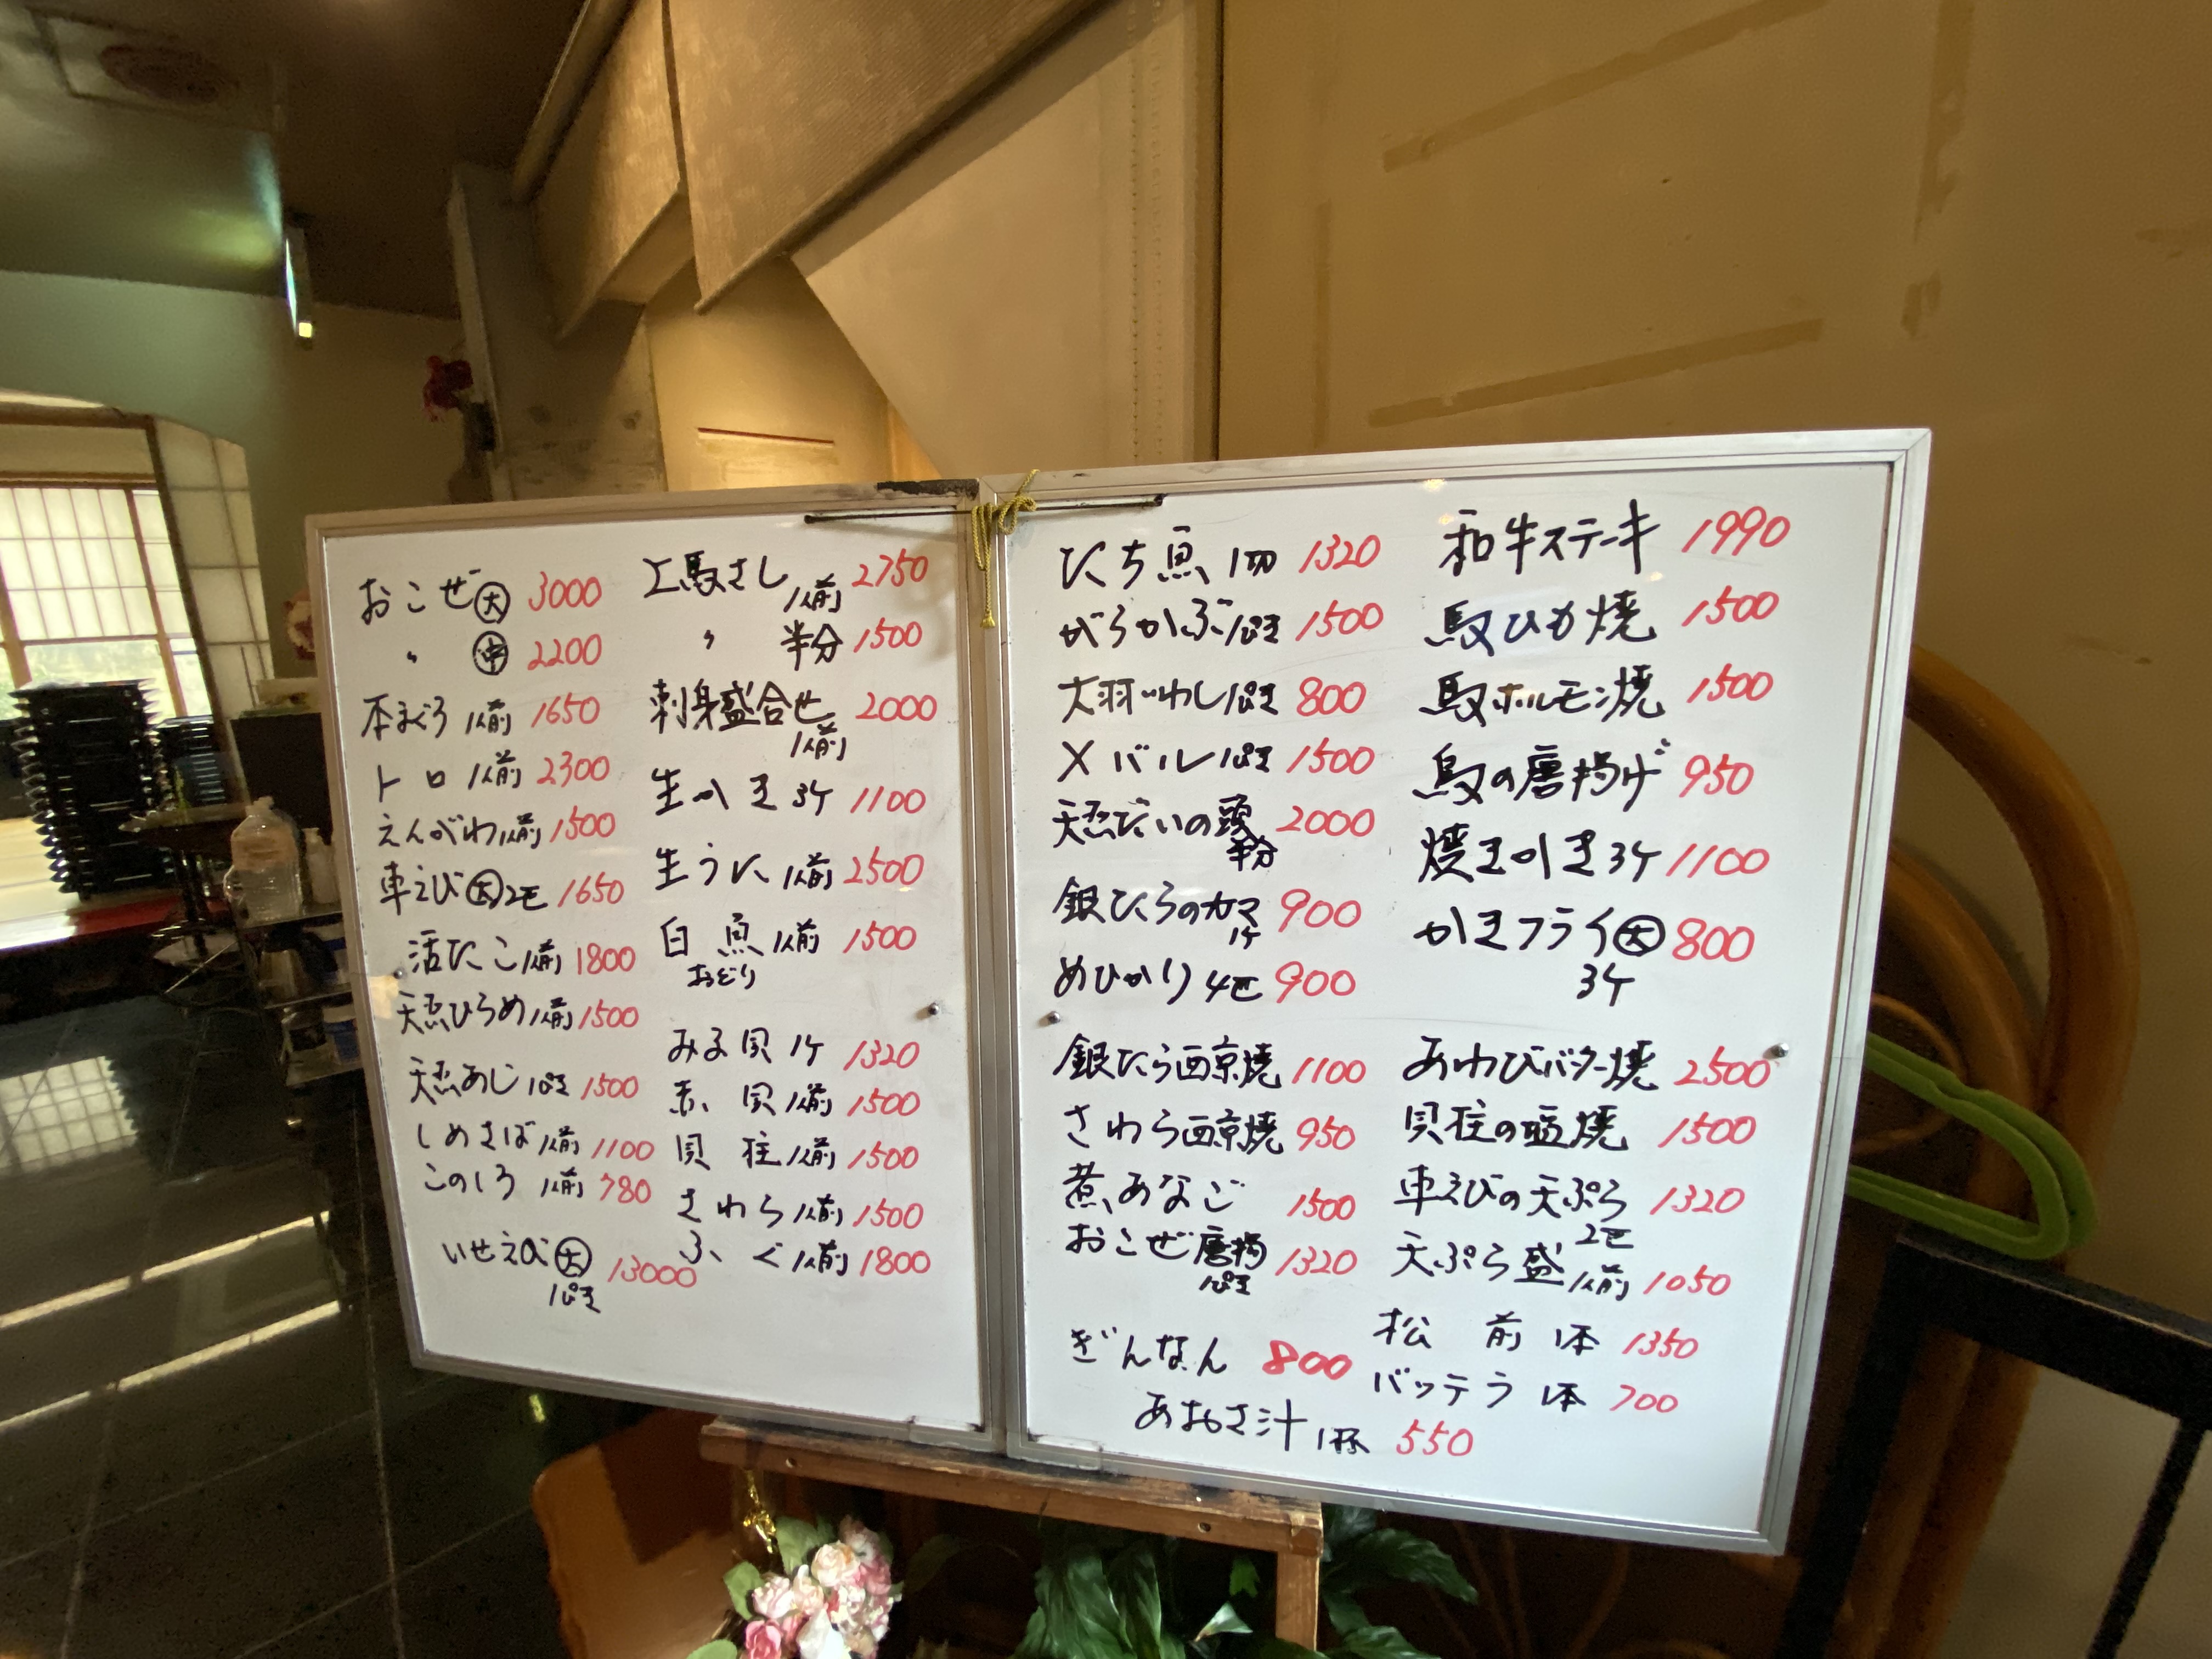 おこぜ 大 3000
〃 中 2200
本まぐろ 1人前 1650
トロ 1人前 2300
えんがわ 1人前 1500
車えび 大 2匹 1650
活たこ 1人前 1800
天然ひらめ 1人前 1500
天然あじ 1匹 1500
しめさば 1人前 1100
このしろ 1人前 780
いせえび 大 13000
1匹
上馬さし 1人前 2750
〃 半分 1500
刺身盛合せ 2000
1人前
生かき 3ケ 1100
生うに 1人前 2500
白魚 1人前 1500
おどり
みる貝 1ケ 1320
赤貝 1人前 1500
貝柱 1人前 1500
さわら 1人前 1500
ふぐ 1人前 1800
たち魚 1切 1320
がらかぶ 1匹 1500
大羽いわし 1匹 800
メバル 1匹 1500
天然だいの頭 2000
半分
銀だらのカマ 900
1ケ
めひかり 4匹 900
銀だら西京焼 1100
さわら西京焼 950
煮あなご 1500
おこぜ唐揚 1320
1匹
ぎんなん 800
あおさ汁 1杯 550
和牛ステーキ 1990
馬ひも焼 1500
馬ホルモン焼 1500
馬の唐揚げ 950
焼きかき 3ケ 1100
かきフライ 大 800
3ケ
あわびバター焼 2500
貝柱の塩焼 1500
車えびの天ぷら 1320
2匹
天ぷら盛 1人前 1050
松前 1本 1350
バッテラ 1本 700